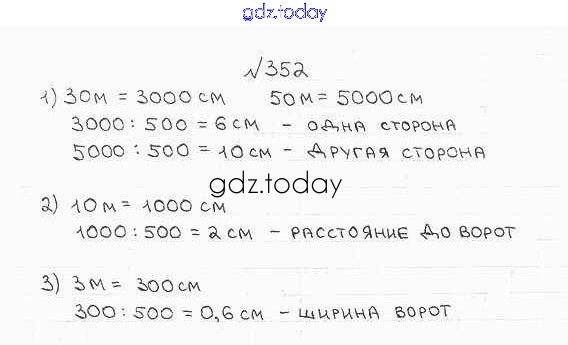 gdz.today
№352
1) 30м = 3000 см 50м = 5000 см
3000 : 500 = 6 см – одна сторона
5000 : 500 = 10 см – другая сторона
gdz.today
2) 10м = 1000 см
1000 : 500 = 2 см – расстояние до ворот
3) 3м = 300 см
300 : 500 = 0,6 см – ширина ворот